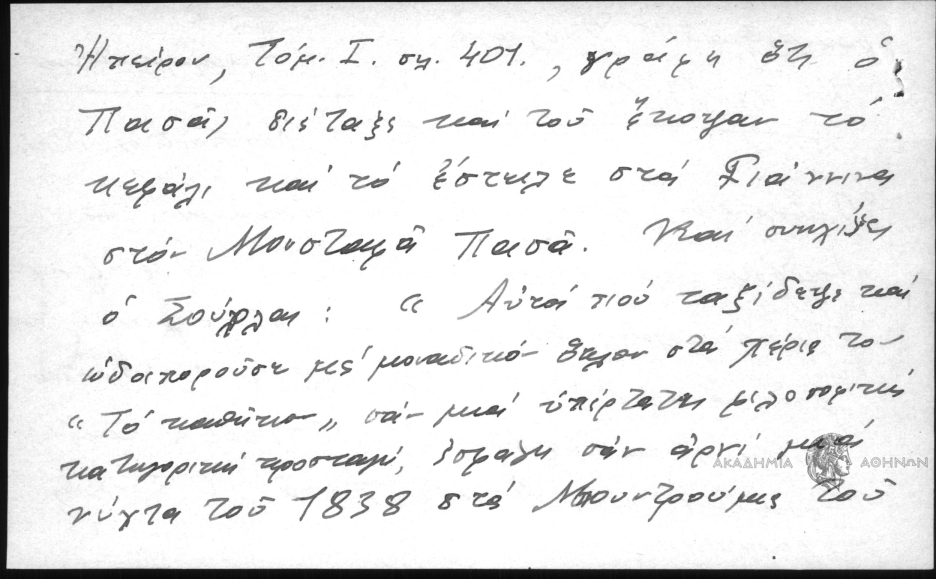 Ἠπείρου, Τόμ. Ι. σελ. 401., γράφει ὅτι ὁ
Πασᾶς διέταξε καί τοῦ ἔκοψαν τό
κεφάλι καί τό ἔστειλε στά Γιάννινα
στόν Μουσταφᾶ Πασᾶ. Καί συνεχίζει
ὁ Σούρλας: "Αὐτός πού ταξίδεψε καί
ὡδοιποροῦσε μέ μοναδικόν ὅπλον στά χέρια του
"Τό καθῆκον" σάν μιά ὑπέρτατη φιλοσοφική
κατηγορική προσταγή, ἐσφάγη σάν ἀρνί μιά
νύχτα τοῦ 1838 στά Μπουντρούμια τοῦ
ΑΚΑΔΗΜΙΑ ΑΘΗΝΩΝ